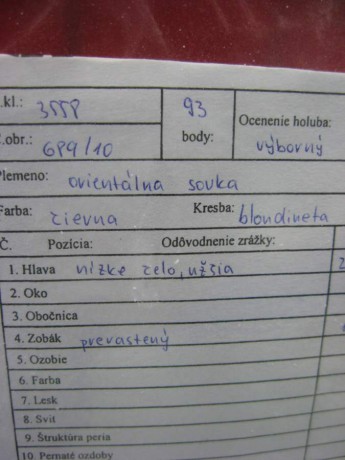 .kl.: 3558 93 Ocenenie holuba:
č.obr.: 689/10 body: výborný
Plemeno: orientálna sovka
Farba: čierna Kresba: blondineta
Č. Pozícia: Odôvodnenie zrážky:
1. Hlava nízke čelo, užšia 2
2. Oko
3. Obočnica
4. Zobák prerastený
5. Ozobie
6. Farba
7. Lesk
8. Svit
9. Štruktúra peria
10. Pernaté ozdoby